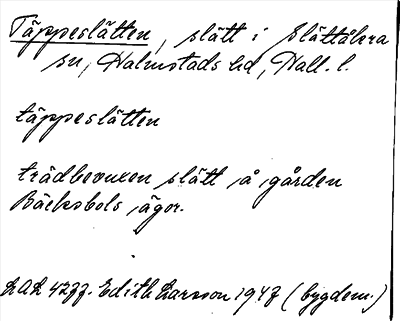 Täppeslätten, slätt i Slättåkra
sn, Halmstads hd, Hall. l.
täppeslätten
trädbevuxen slätt å gården
Bäcksbols ägor.
Edith Larsson 1947 (bygdem.)